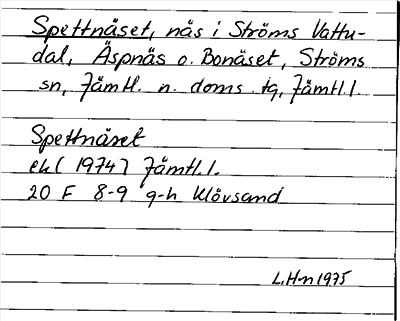 Spettnäset, näs i Ströms Vattu-
dal, Äspnäs o. Bonäset, Ströms
sn, Jämtl. n. doms. tg, Jämtl.l
Spettnäset
ek (1974) Jämtl.l.
20 F 8-9 g-h Klövsand
L.H-n 1975